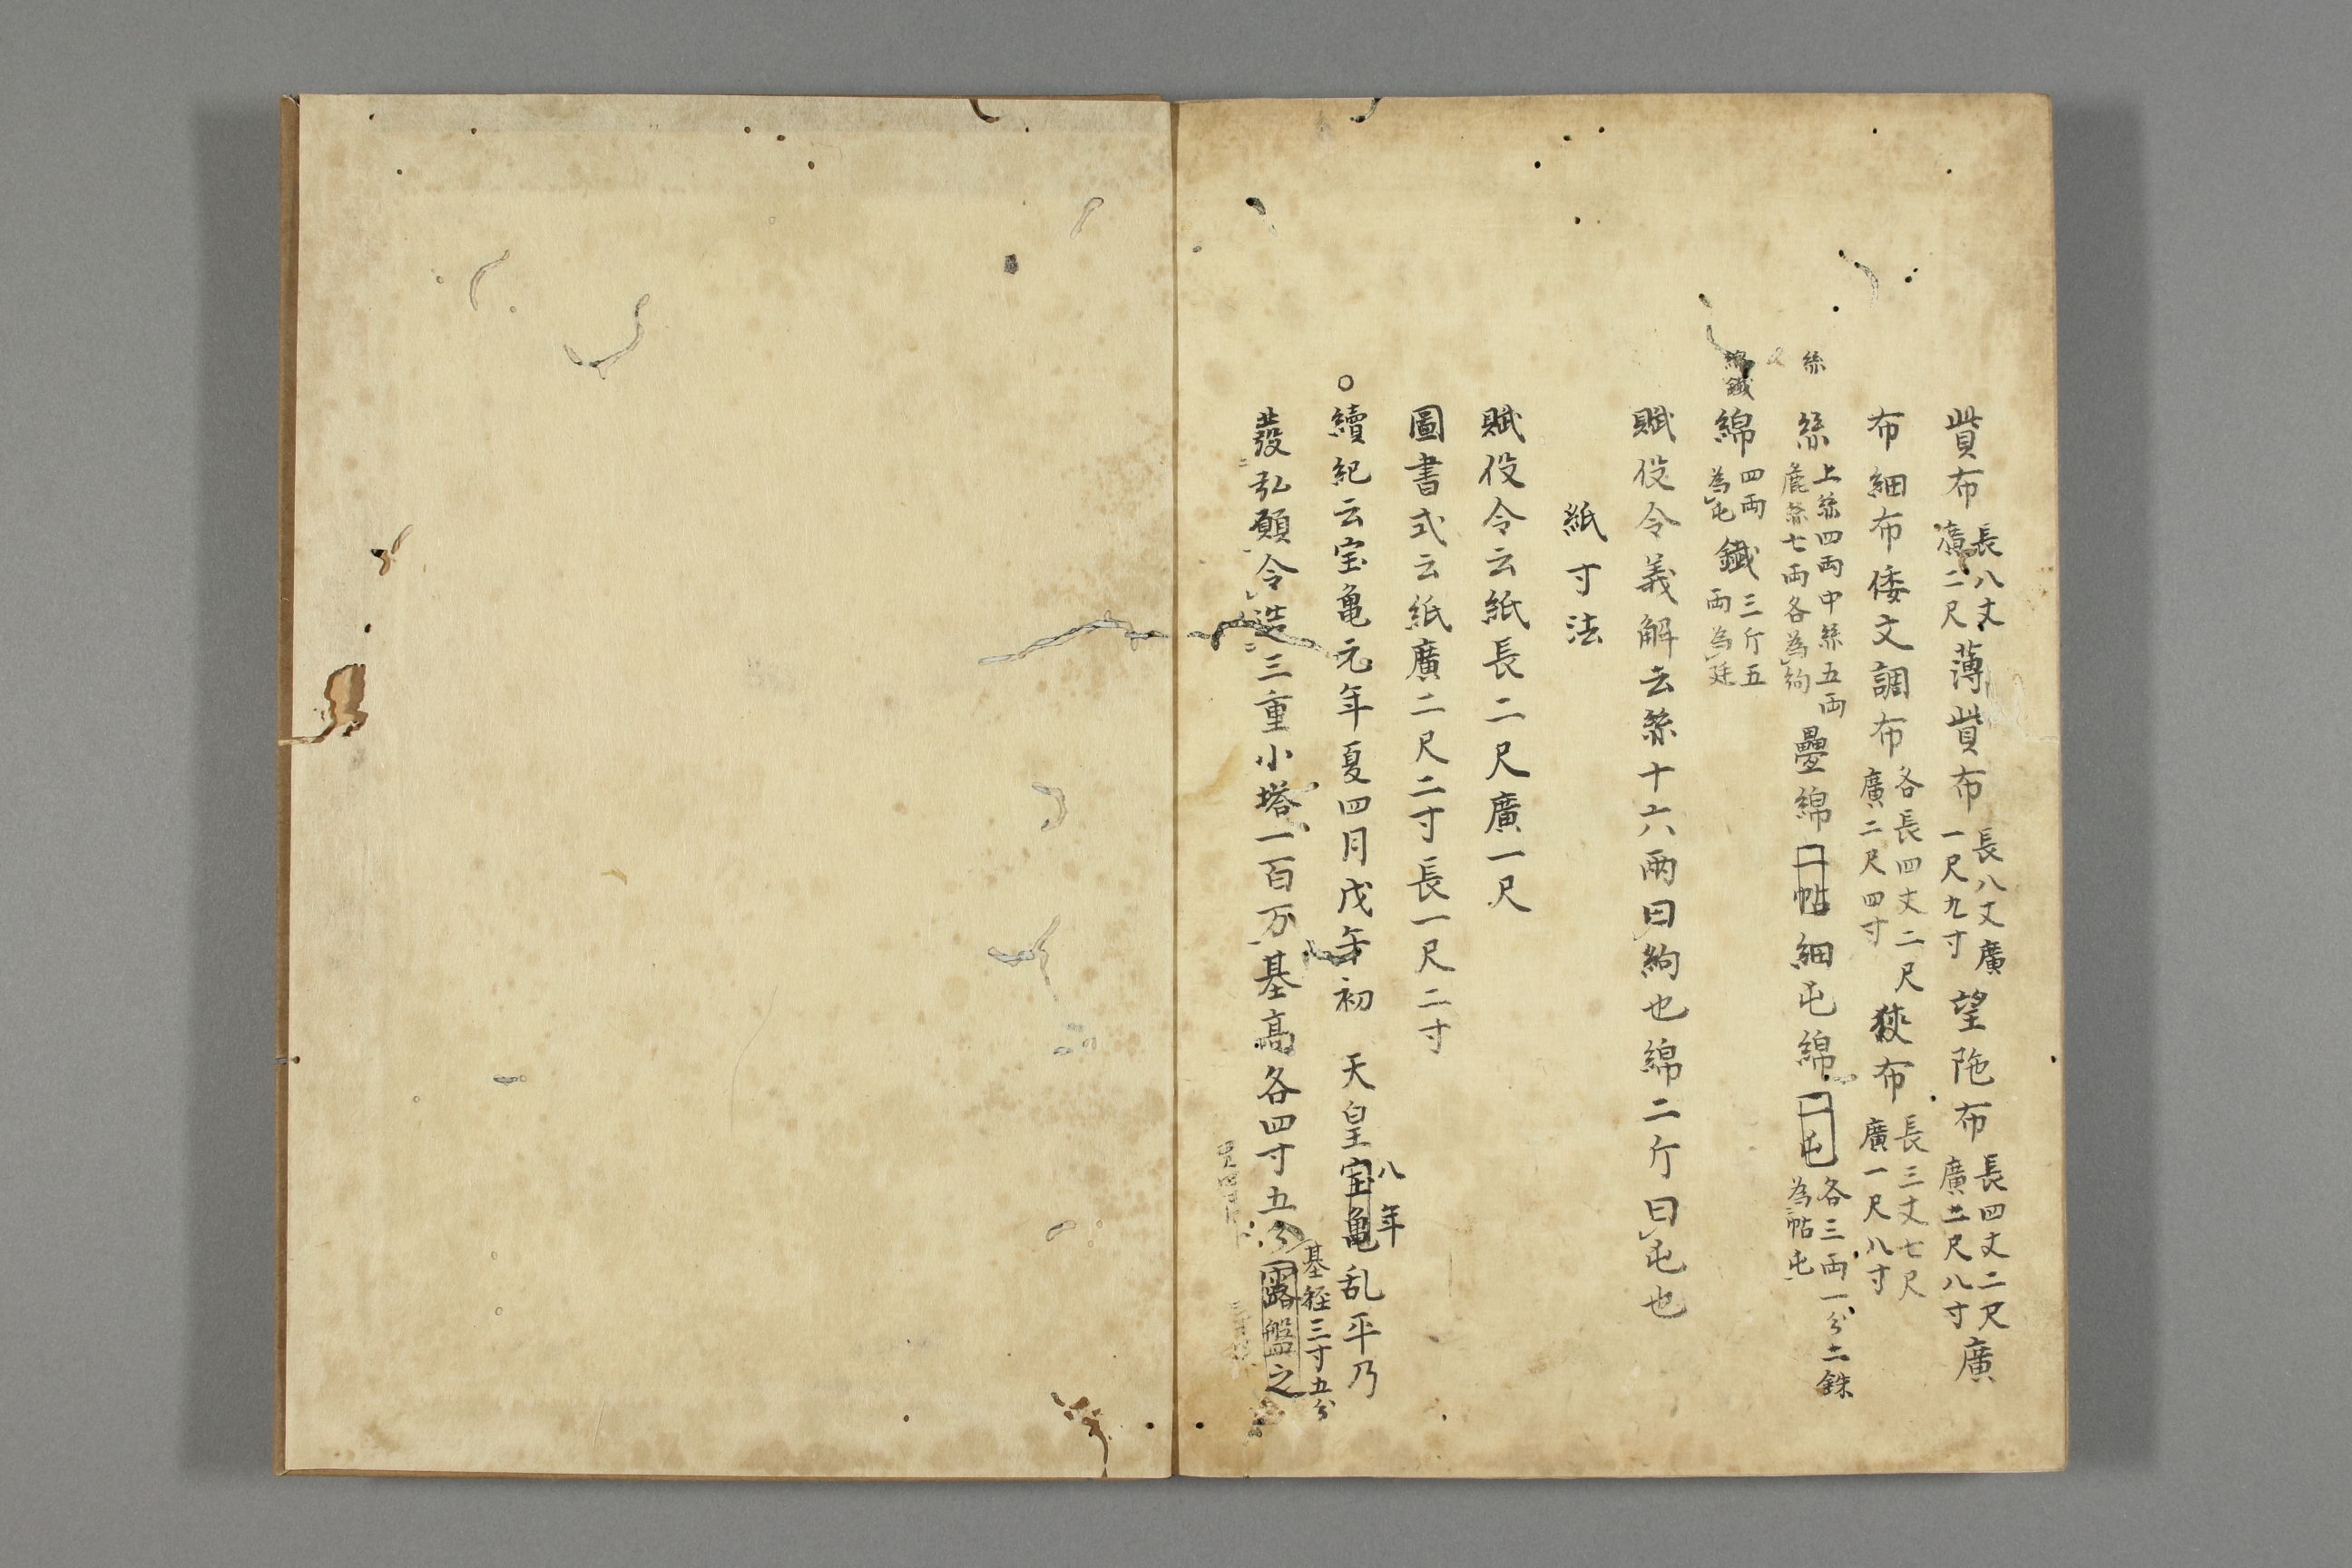 貲布 長八丈 廣二尺 薄貲布 長八丈廣 一尺九寸 望陁布 長四丈二尺 廣二尺八寸 廣
布細布倭文調布 各長四丈二尺 廣二尺四寸 狹布 長三丈七尺 廣一尺八寸
絲
絲 上絲四両中絲五両 麁絲七両各為絇 疊綿 一帖 細屯綿 一屯 各三両一分二銖 為帖屯
綿鐵
綿 四両 為屯 鐵 三斤五 両為廷
賦役令義解云絲十六兩曰絇也綿二斤曰屯也
紙寸法
賦役令云紙長二尺廣一尺
圖書式云紙廣二尺二寸長一尺二寸
○續紀云宝亀元年夏四月戊午初 天皇宝亀乱平乃
八年
發弘願令造三重小塔一百万基高各四寸五分露盤之
基徑三寸五分